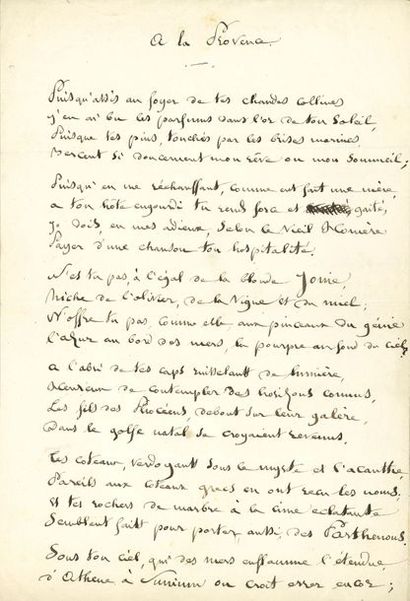 A la Provence.
Puisqu'assis au foyer de tes chaudes collines
j'en ai bu les parfums dans l'or de ton Soleil,
Puisque tes pins, touchés par les brises marines,
Bercent si doucement mon rêve ou mon Sommeil;
Puisqu'en me réchauffant, comme eut fait une mère,
a ton hôte engourdi tu rends force et gaité,
Je dois, en mes adieux, Selon le vieil Homère
Payer d'une chanson ton hospitalité.
N'es tu pas, à l'égal de la blonde Ionie,
Riche de l'olivier, de la Vigne et du miel;
N'offre tu pas, comme elle aux pinceaux du génie
l'azur au bord des mers, la pourpre au fond du ciel?
A l'abri de tes caps ruisselant de lumière,
Heureux de contempler des horizons connus,
Les fils des Phocéens, debout sur leur galère,
Dans le golfe natal se croyaient revenus,
Tes coteaux, verdoyant sous le myrte et l'acanthe,
Pareils aux coteaux grecs en ont reçu les noms,
Et tes rochers de marbre à la cime éclatante
Semblent faits pour porter, aussi, des Parthénons.
Sous ton ciel, qui des mers enflamme l'étendue,
d'Athène à Sunium on croit errer encor;